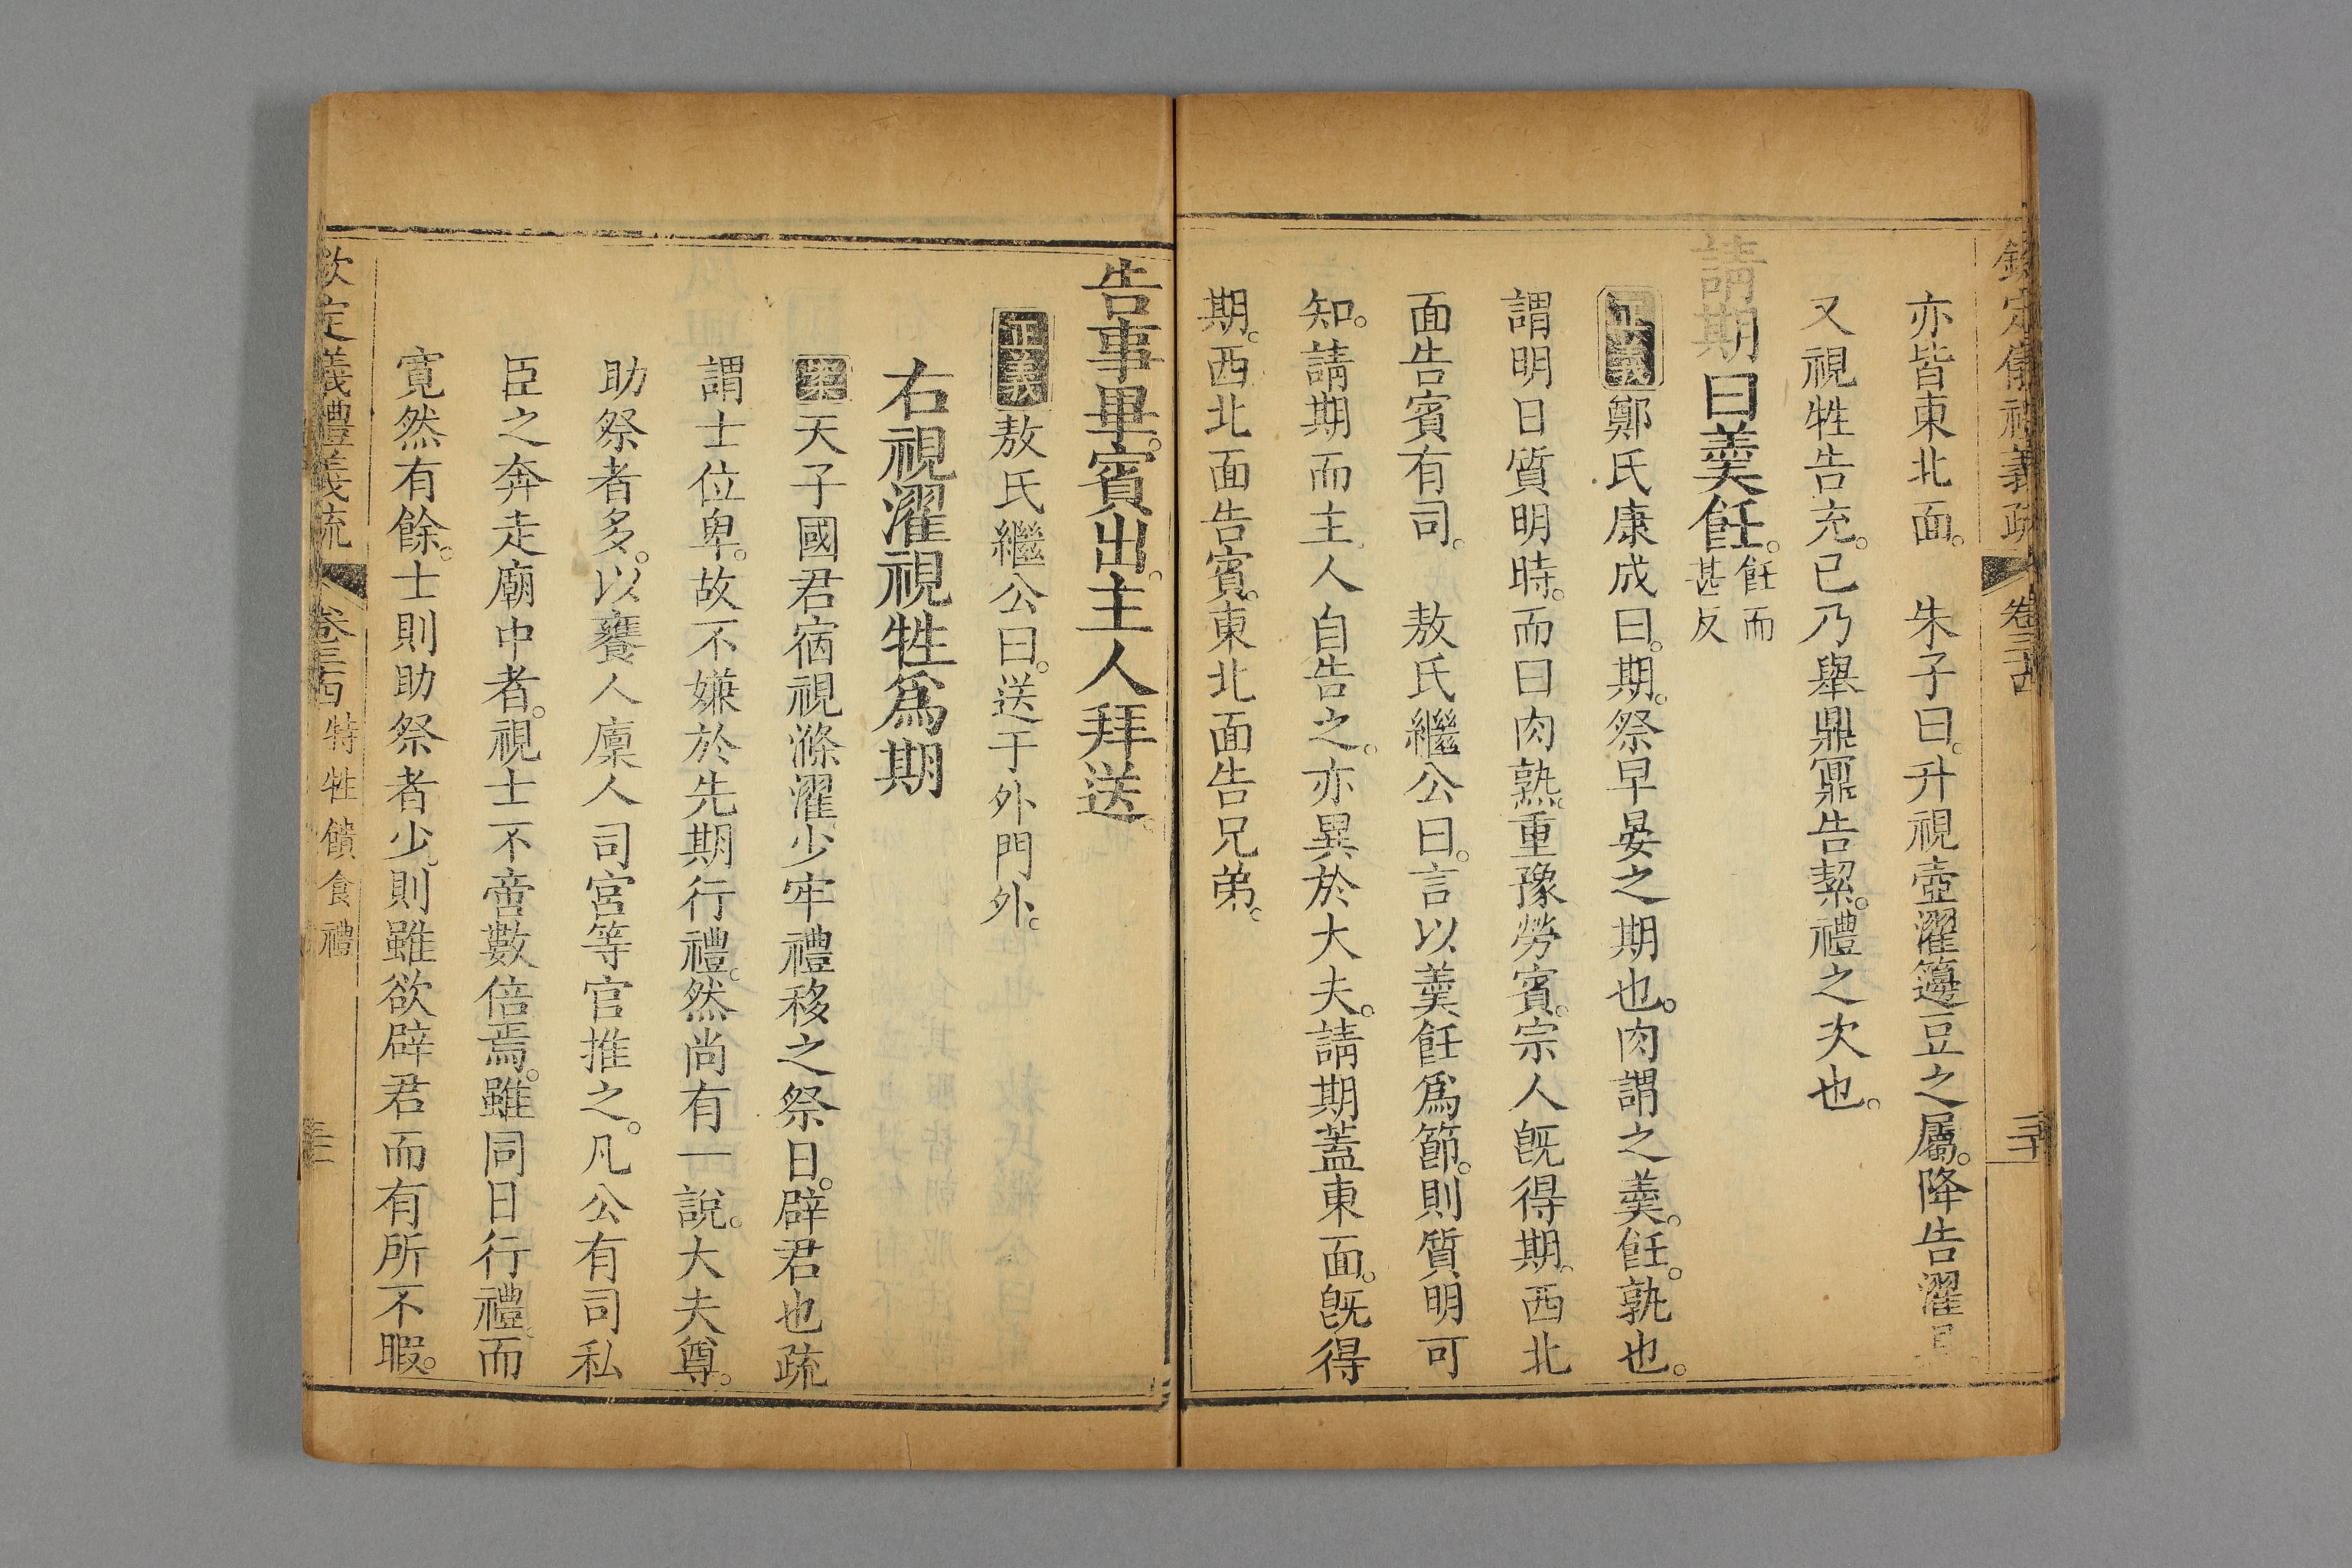 欽定儀禮義疏 卷三十四 三十
亦皆東北面。 朱子曰。升視壺濯籩豆之屬。降告濯具
又視牲告充。已乃舉鼎鼏告絜。禮之次也。
請期曰羹飪。飪而甚反
正義鄭氏康成曰。期。祭早晏之期也。肉謂之羹。飪。孰也。
謂明日質明時。而曰肉熟。重豫勞賓。宗人旣得期。西北
面告賓有司。 敖氏繼公曰。言以羹飪爲節。則質明可
知。請期而主人自告之。亦異於大夫。請期蓋東面。旣得
期。西北面告賓。東北面告兄弟。
告事畢。賓出。主人拜送。
正義敖氏繼公曰。送于外門外。
右視濯視牲爲期
案天子國君宿視滌濯。少牢禮移之祭日。辟君也。疏
謂士位卑。故不嫌於先期行禮。然尚有一說。大夫尊。
助祭者多。以饔人廩人司宮等官推之。凡公有司私
臣之奔走廟中者。視士不啻數倍焉。雖同日行禮。而
寬然有餘。士則助祭者少。則雖欲辟君而有所不暇。
欽定儀禮義疏 卷三十四 特牲饋食禮